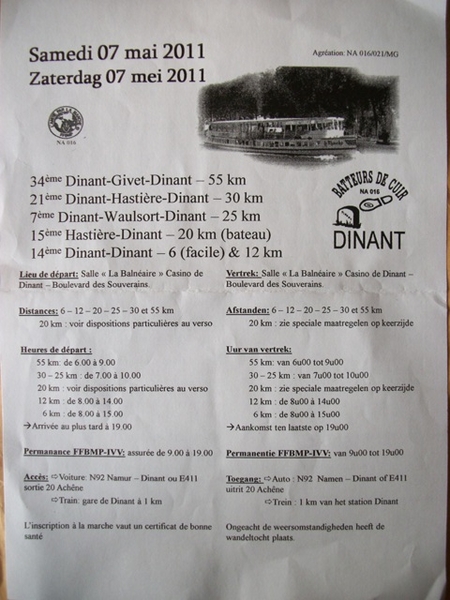 Samedi 07 mai 2011
Zaterdag 07 mei 2011
Agréation: NA 016/021/MG
NA 016
34ème Dinant-Givet-Dinant – 55 km
21ème Dinant-Hastière-Dinant – 30 km
7ème Dinant-Waulsort-Dinant – 25 km
15ème Hastière-Dinant – 20 km (bateau)
14ème Dinant-Dinant – 6 (facile) & 12 km
BATTEURS DE CUIR
NA 016
DINANT
Lieu de départ: Salle « La Balnéaire » Casino de
Dinant – Boulevard des Souverains.
Distances: 6 – 12 – 20 – 25 – 30 et 55 km
20 km : voir dispositions particulières au verso
Heures de départ :
55 km: de 6.00 à 9.00
30 – 25 km : de 7.00 à 10.00
20 km : voir dispositions particulières au verso
12 km : de 8.00 à 14.00
6 km : de 8.00 à 15.00
→Arrivée au plus tard à 19.00
Permanance FFBMP-IVV: assurée de 9.00 à 19.00
Accès: ⇨Voiture: N92 Namur – Dinant ou E411
sortie 20 Achêne
⇨Train: gare de Dinant à 1 km
L'inscription à la marche vaut un certificat de bonne
santé
Vertrek: Salle « La Balnéaire » Casino de Dinant –
Boulevard des Souverains.
Afstanden: 6 – 12 – 20 – 25 – 30 en 55 km
20 km : zie speciale maatregelen op keerzijde
Uur van vertrek:
55 km: van 6u00 tot 9u00
30 – 25 km : van 7u00 tot 10u00
20 km : zie speciale maatregelen op keerzijde
12 km : de 8u00 à 14u00
6 km : de 8u00 à 15u00
→Aankomst ten laatste op 19u00
Permanentie FFBMP-IVV: van 9u00 tot 19u00
Toegang: ⇨Auto : N92 Namen – Dinant of E411
uitrit 20 Achêne
⇨Trein : 1 km van het station Dinant
Ongeacht de weersomstandigheden heeft de
wandeltocht plaats.